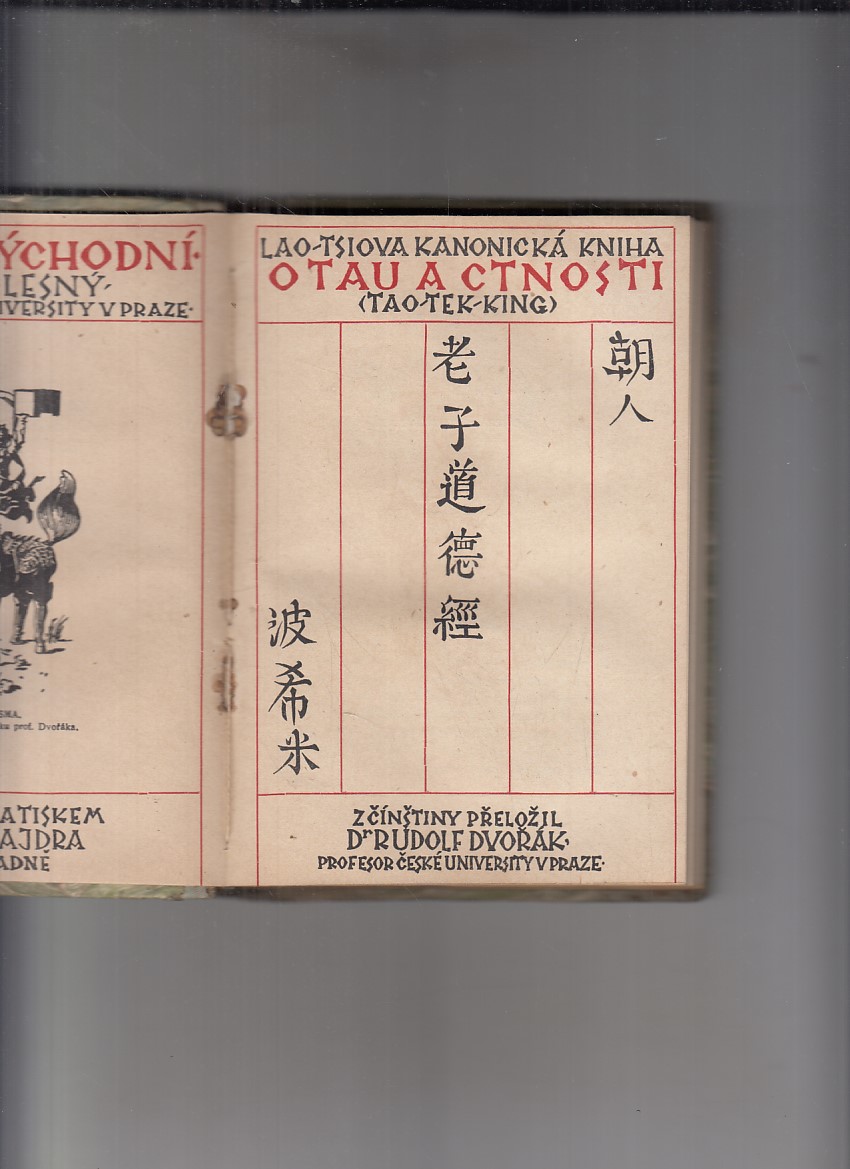 ÝCHODNÍ·
LESNÝ,
IVERSITY V PRAZE·
SMA.
ku prof. Dvořáka.
ATISKEM
AJDRA
ADNĚ
LAO-TSIOVA KANONICKÁ KNIHA
O TAU A CTNOSTI
(TAO-TEK-KING)
朝人
老子道德經
波希米
Z ČÍNŠTINY PŘELOŽIL
Dr RUDOLF DVOŘÁK,
PROFESOR ČESKÉ UNIVERSITY V PRAZE·